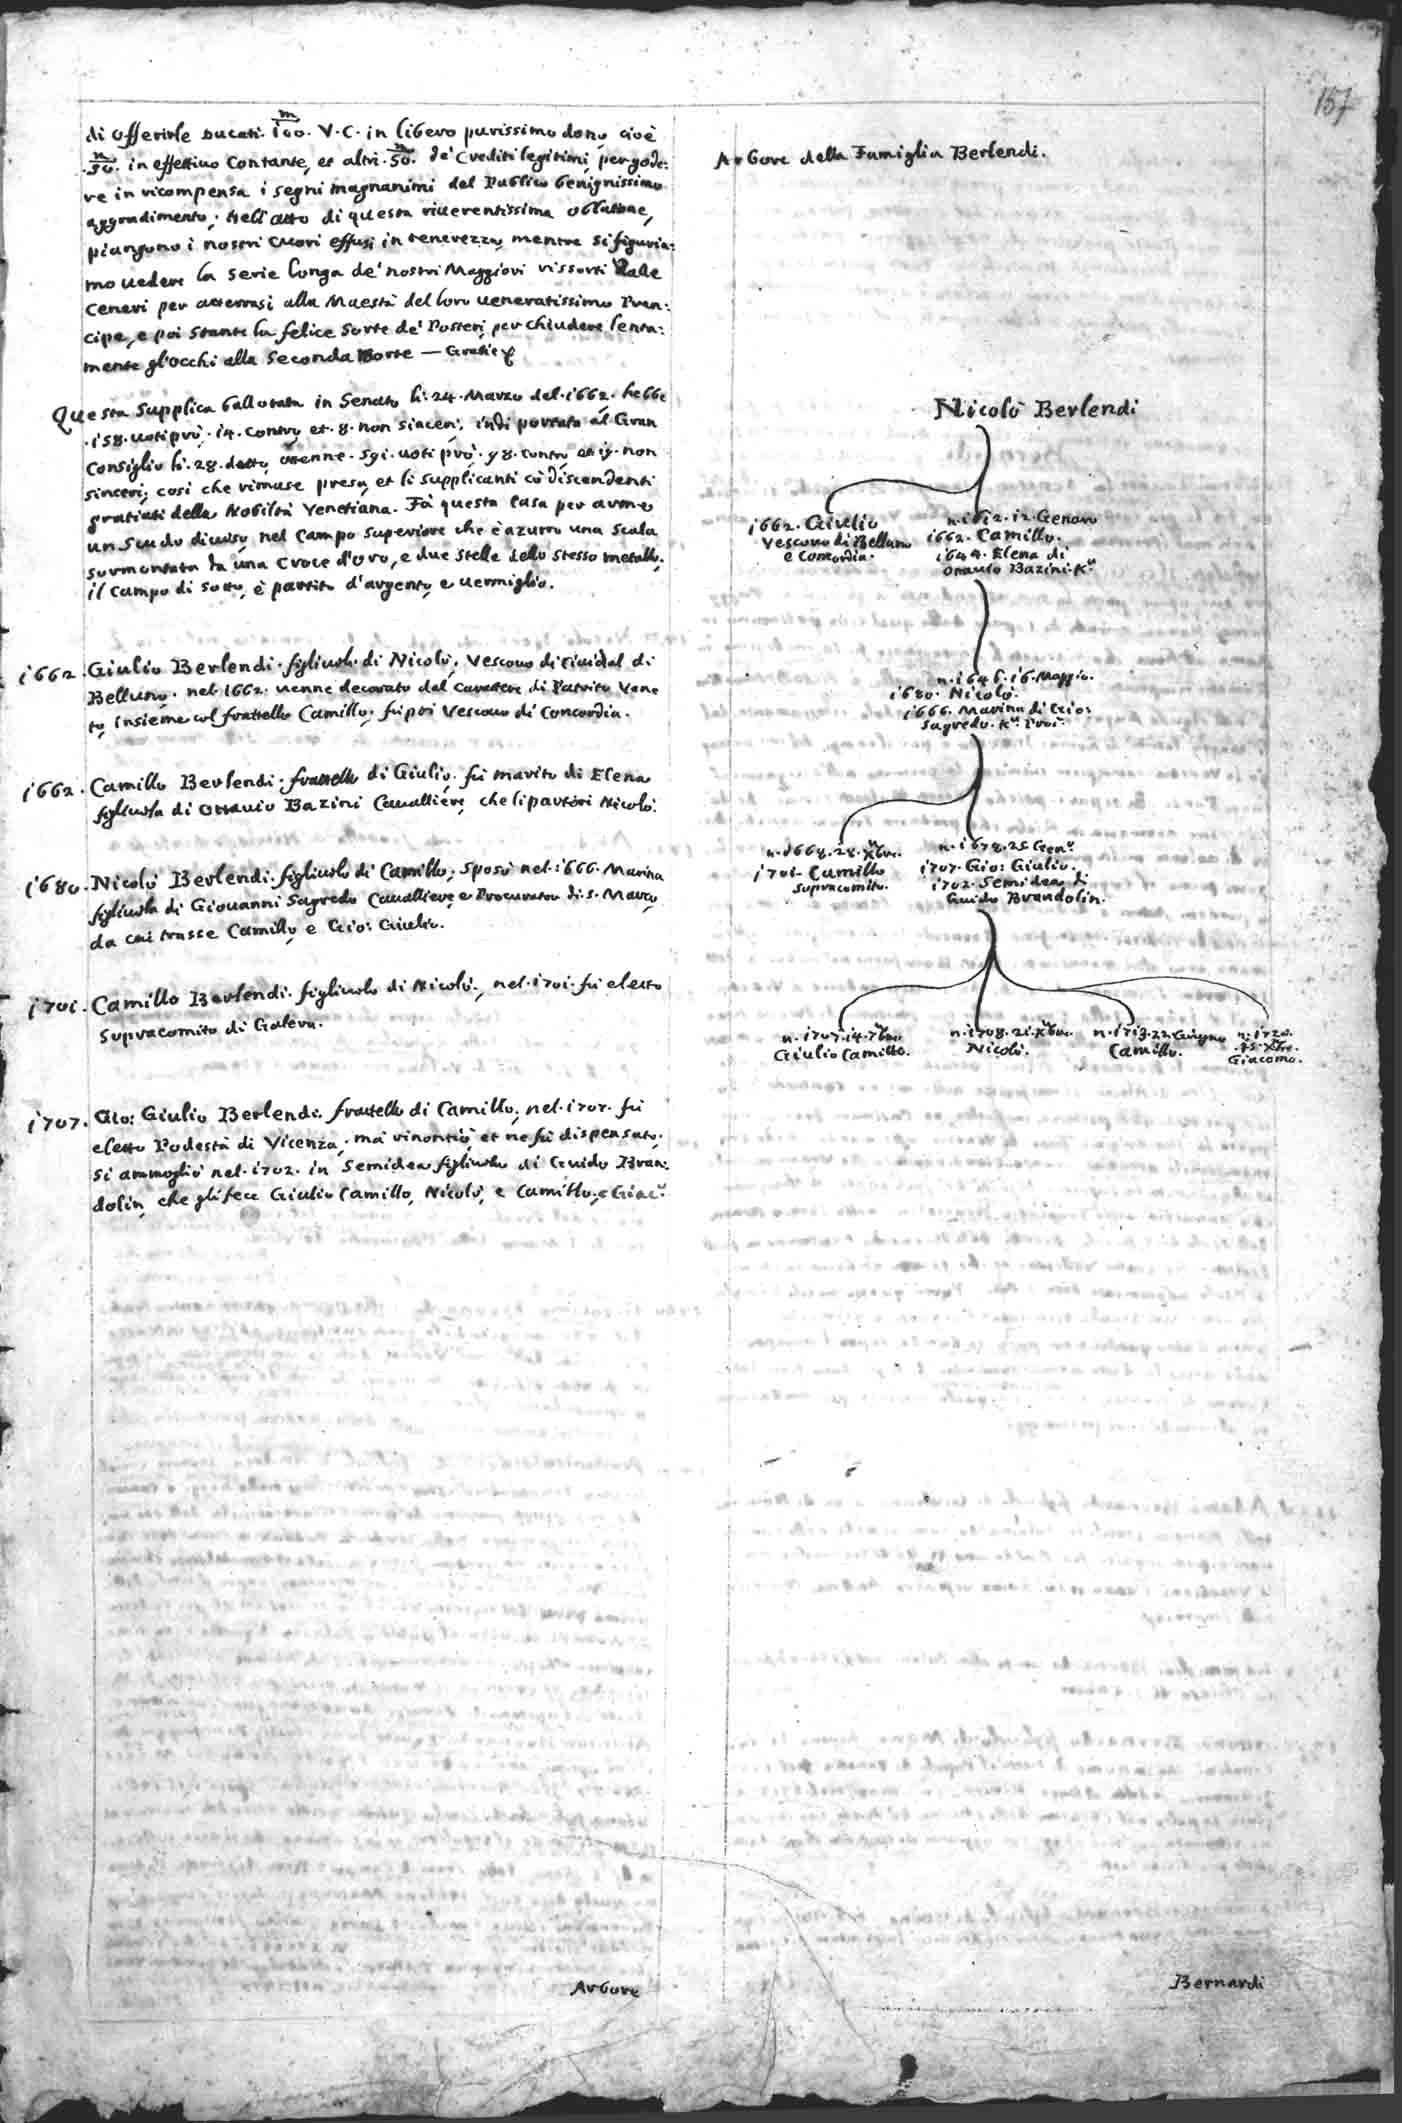 157
di offerirle Ducati. 100. V. C. in libero purissimo dono, cioè
m
.50. in effettivo Contante, et altri .50. de' Crediti legitimi, per gode:
re in ricompensa i segni magnanimi del Publico benignissimo
aggradimento; nell'atto di questa riverentissima oblatione,
piangono i nostri cuori effusi in tenerezza, mentre si figuria:
mo vedere la serie longa de' nostri Maggiori rissorti dalle
Ceneri per atterrarsi alla Maestà del loro veneratissimo Pren:
cipe, e poi stante la felice sorte de' Posteri, per chiudere lenta:
mente gl'occhi alla seconda Morte — Gratie
Questa supplica ballotata in Senato li. 24. Marzo del. 1662. hebbe
.158. voti prò. 14. contro, et. 8. non sinceri, indi portata al Gran
Consiglio li. 28. detto, ottenne. 591. voti prò. 98. contro, et 19. non
sinceri, così che rimase presa, et li supplicanti cò discendenti
gratiati della Nobiltà Venetiana. Fà questa Casa per arme
un Scudo diviso, nel campo superiore che è azurro una scala
sormontata dà una Croce d'oro, e due stelle dello stesso metallo.
il campo di sotto, è partito d'argento, e vermiglio.
1662. Giulio Berlendi. figliuolo di Nicolò, Vescovo di Cividal di
Belluno. nel. 1662. venne decorato del carattere di Patritio Vene
to, insieme col frattello Camillo. fù poi Vescovo di Concordia.
1662. Camillo Berlendi. frattello di Giulio, fù marito di Elena
figliuola di Ottavio Bazini Cavalliere, che li partorì Nicolò.
1680. Nicolò Berlendi. figliuolo di Camillo, sposò nel. 1666. Marina
figliuola di Giovanni Sagredo Cavalliere, e Procurator di. S. Marco,
da cui trasse Camillo, e Gio: Giulio.
1701. Camillo Berlendi. figliuolo di Nicolò, nel. 1701. fù eletto
Sopracomito di Galera.
1707. Gio: Giulio Berlendi. frattello di Camillo, nel. 1707. fù
eletto Podestà di Vicenza, mà rinontiò, et ne fù dispensato.
si ammogliò nel. 1702. in Semidea figliuola di Guido Bran:
dolin, che gli fece Giulio Camillo, Nicolò, e Camillo, e Giac.º
Arbore
Arbore della Famiglia Berlendi.
Nicolò Berlendi
1662. Giulio
Vescovo di Belluno
e Concordia.
n. 1612. 12. Genaro
1662. Camillo.
1644. Elena di
Ottavio Bazini. K.r
n. 1646. 16. Maggio.
1680. Nicolò.
1666. Marina di Gio:
Sagredo. K.r Pror.
n. 1668. 28. Xbre.
1701. Camillo
Sopracomito.
n. 1678. 25 Gen.º
1707. Gio: Giulio.
1702. Semidea di
Guido Brandolin.
n. 1707. 14. 7bre
Giulio Camillo.
n. 1708. 21. Xbre.
Nicolò.
n. 1713. 22. Giugno
Camillo.
n. 1720.
.25. Xbre.
Giacomo.
Bernardi